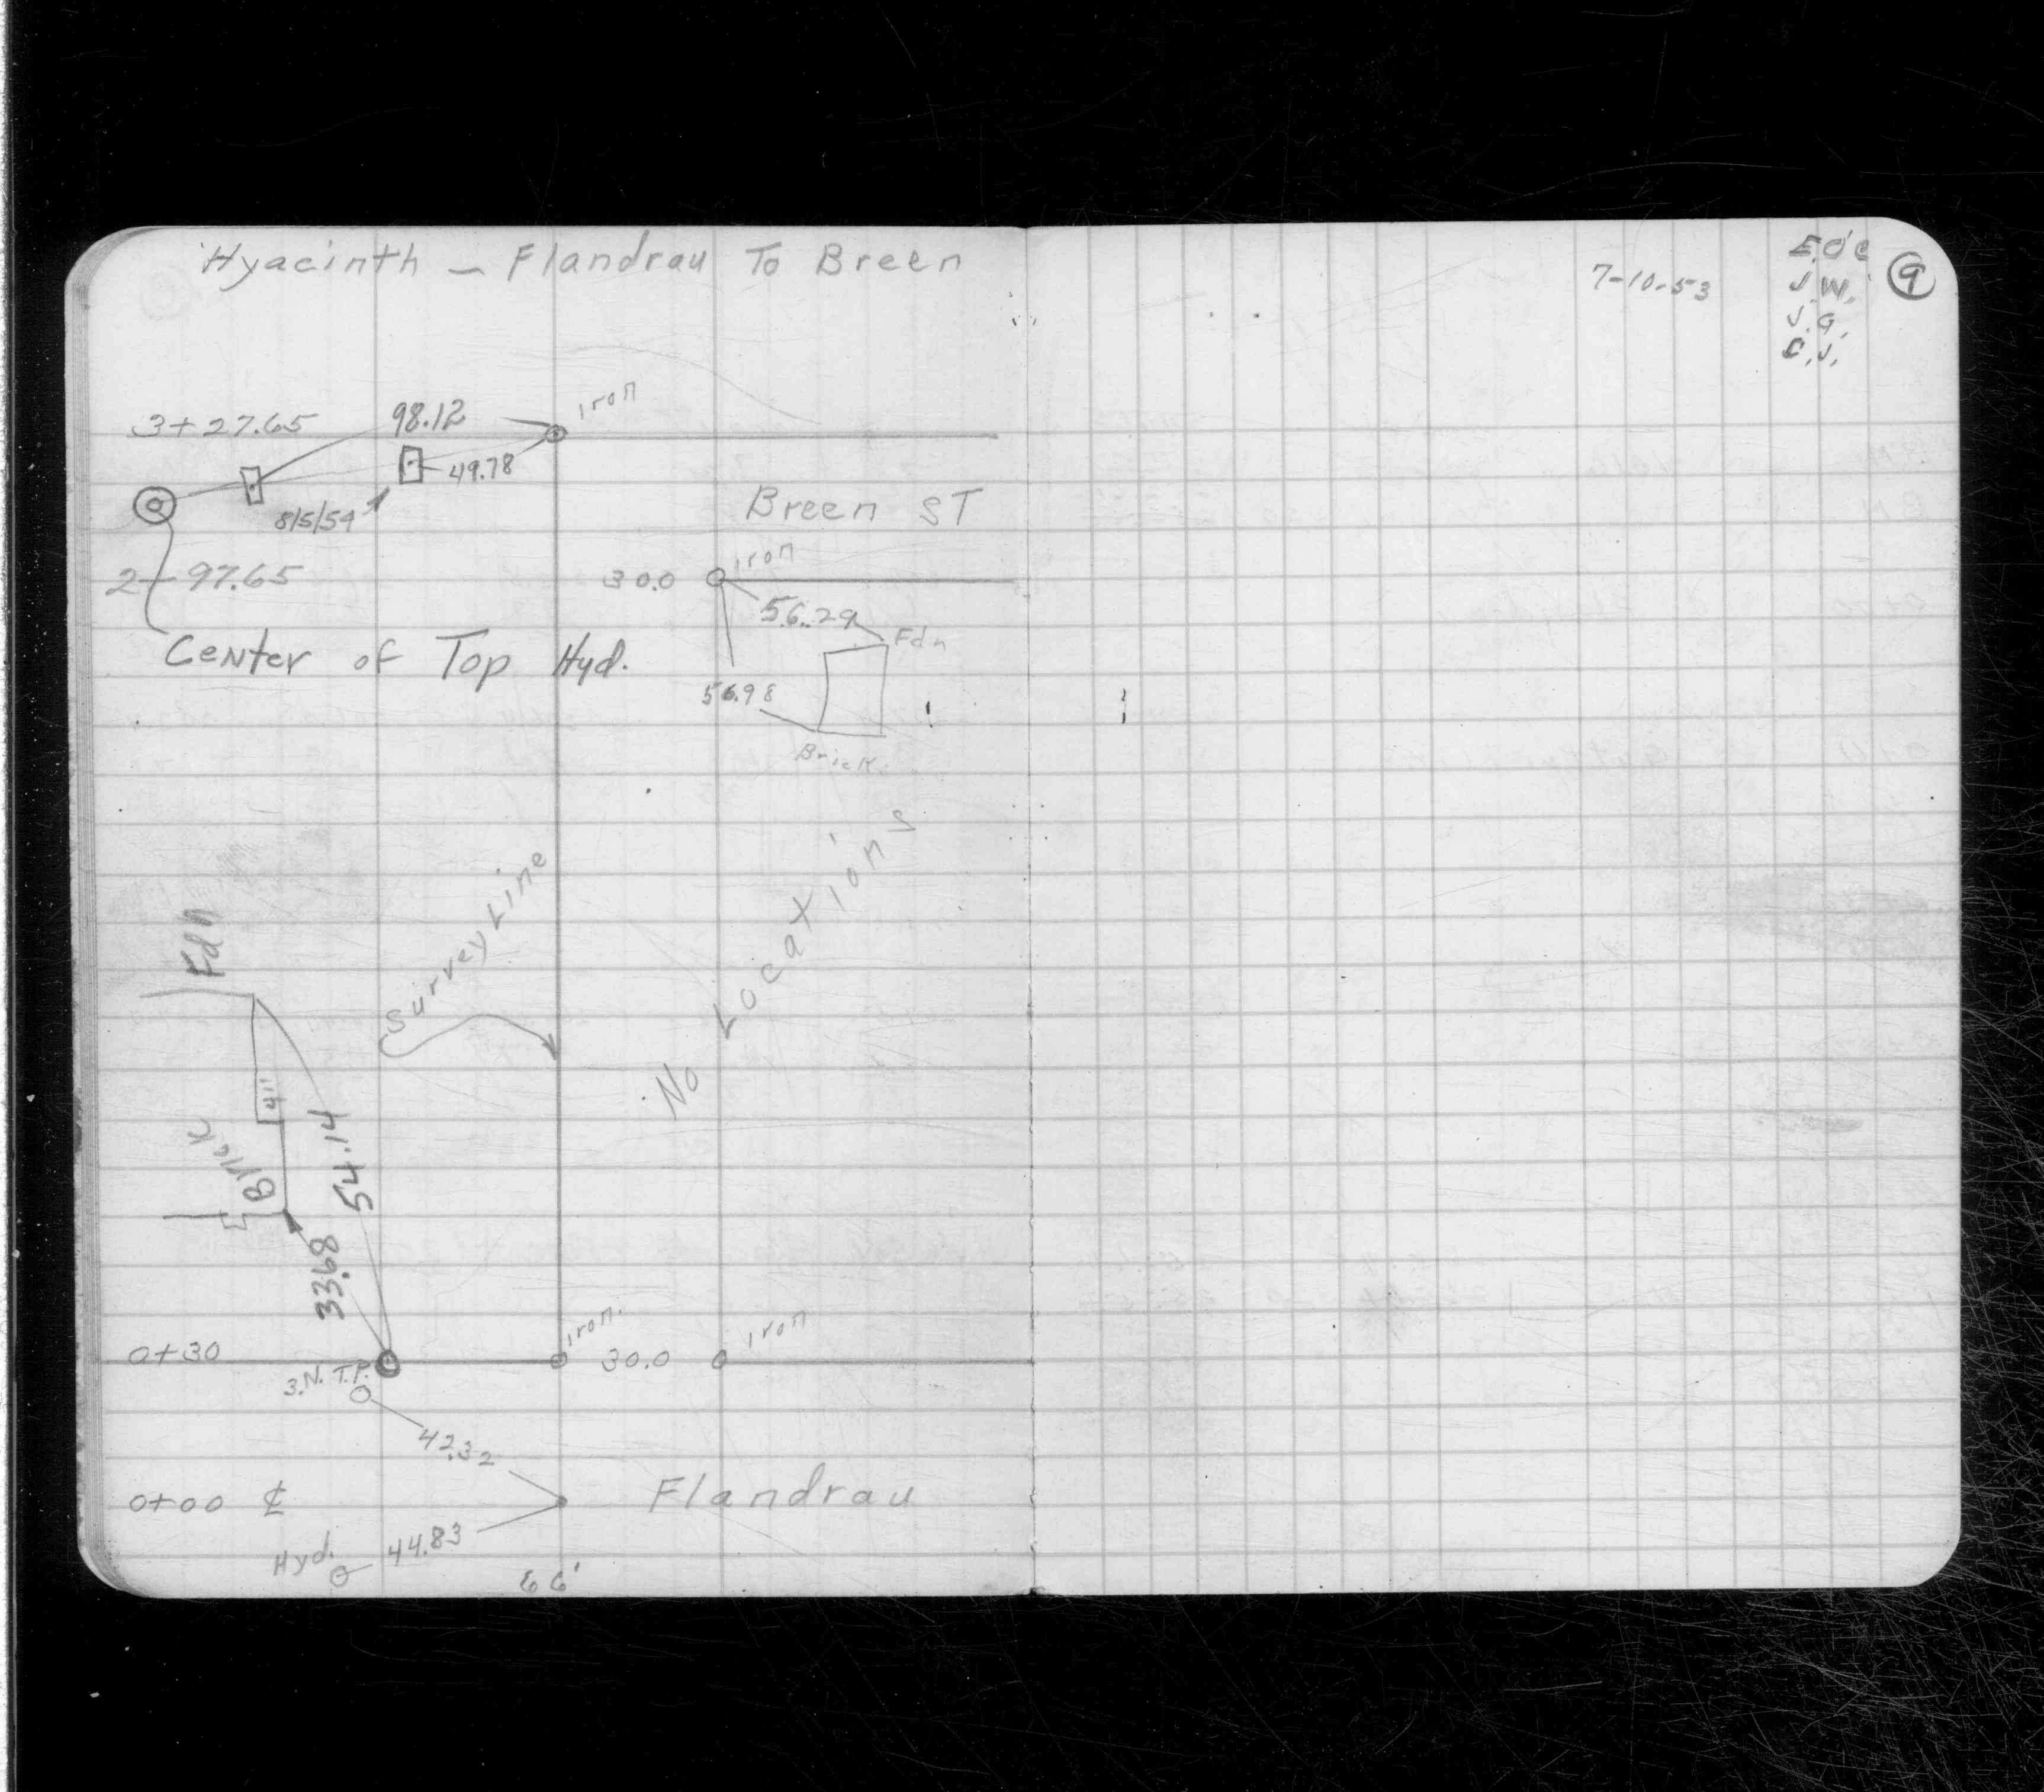 Hyacinth – Flandrau To Breen
7-10-53
E.O'C
J.W.
J.G.
C.J.
9
3+27.65
98.12
iron
49.78
8/5/54
Breen ST
2+97.65
30.0
iron
56.29
Fdn
Center of Top Hyd.
56.98
Brick
Survey Line
No Locations
Fdn
4"
Brick
54.14
33.68
0+30
iron
30.0
iron
3.N. T.P.
42.32
0+00 ℄
Flandrau
Hyd.
44.83